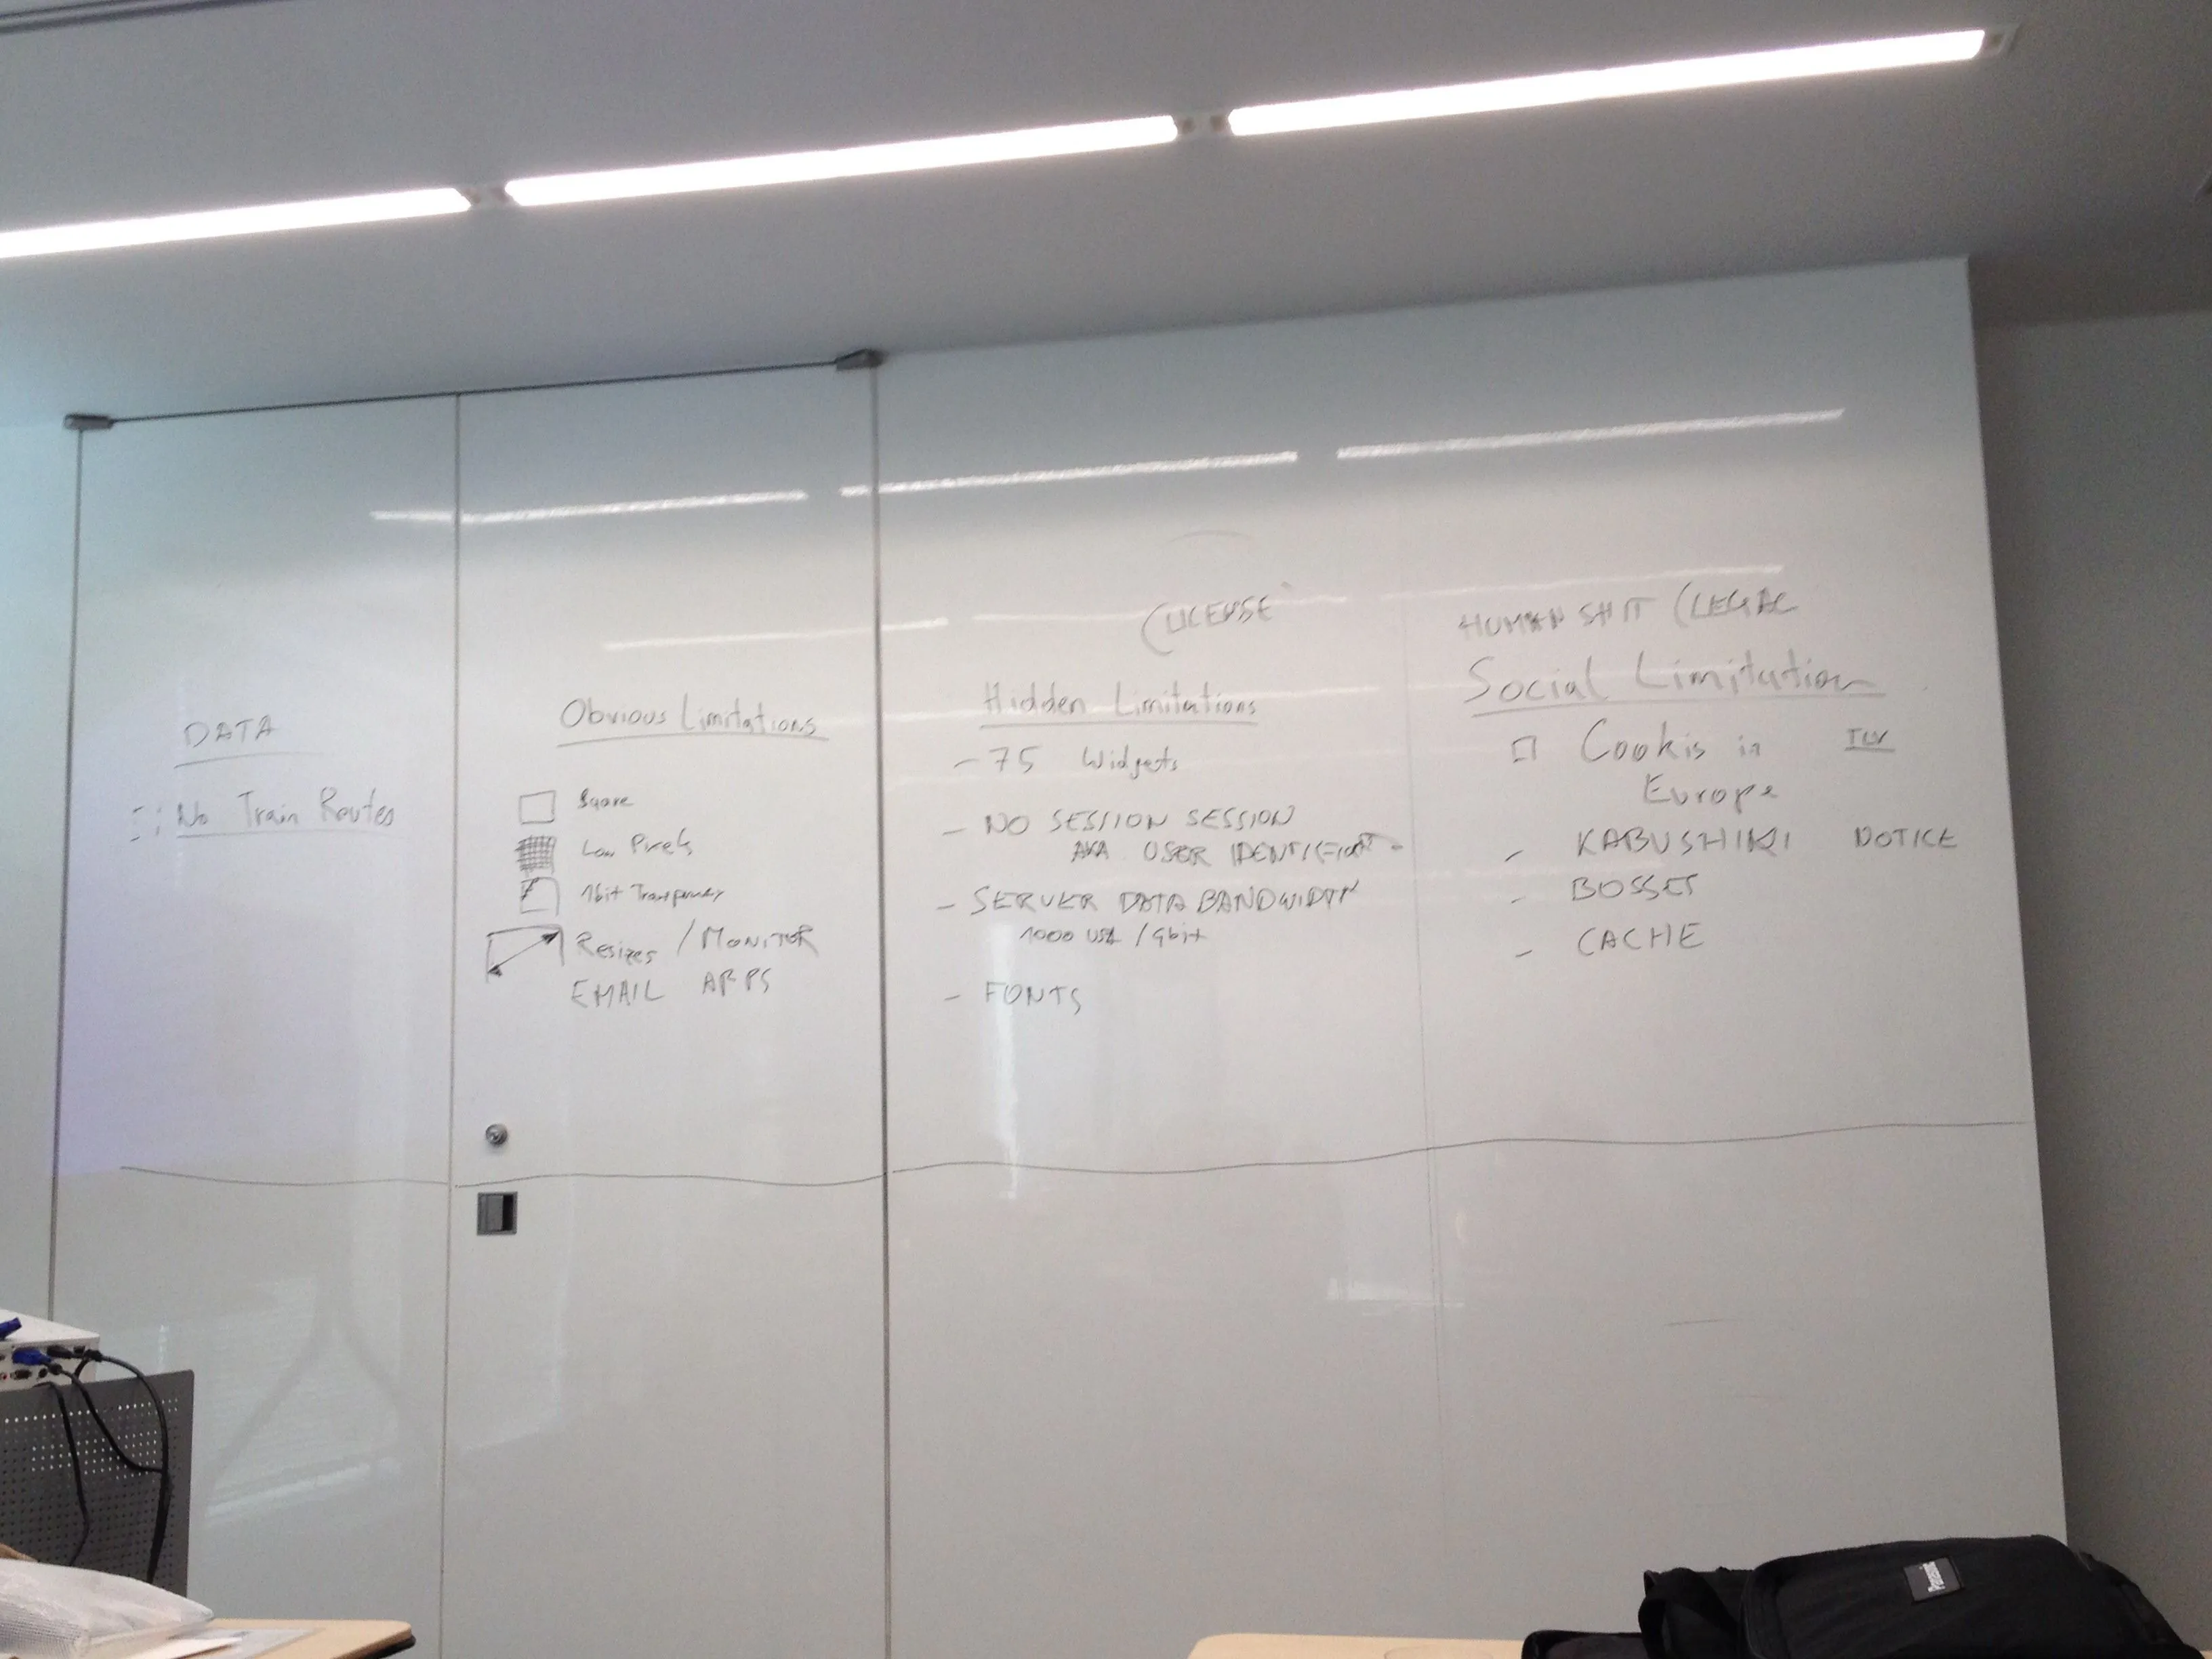 DATA
No Train Routes
Obvious Limitations
Square
Low Pixels
1bit Transparency
Resizes / MONITOR
EMAIL APPS
(LICENSE
Hidden Limitations
- 75 Widgets
- NO SESSION SESSION
AKA USER
- SERVER DATA BANDWIDTH
1000 / Gbit
- FONTS
HUMAN SHIT (LEGAL
Social Limitation
Cookis in
Europe
- KABUSHIKI NOTICE
- BOSSES
- CACHE